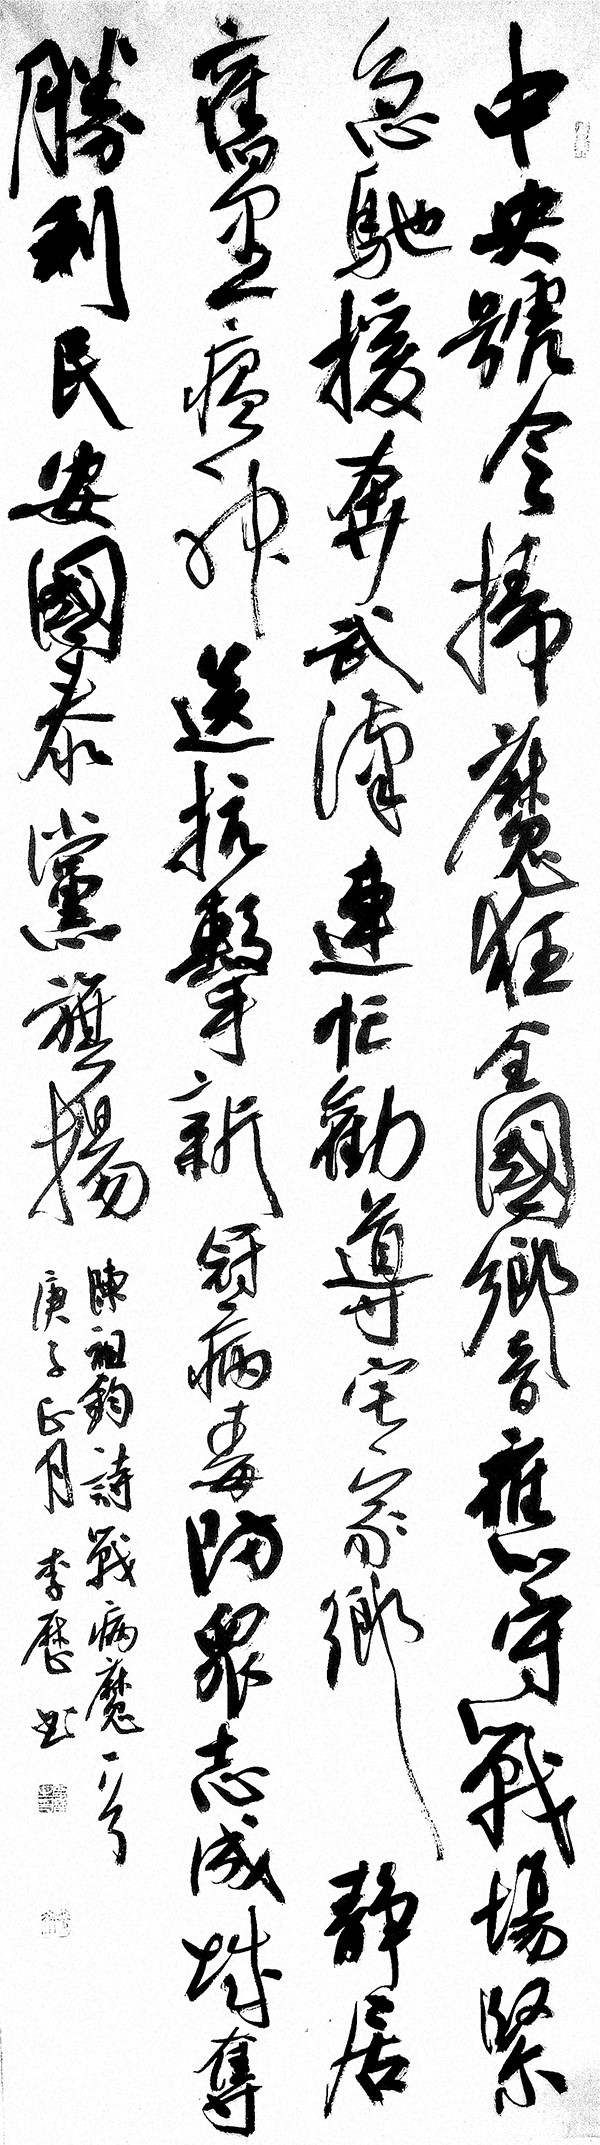 中央號令掃魔狂全國鄉音應守戰場緊
急馳援奔武漢連忙勸導宅家鄉靜居
舊歲瘟神送抗擊新冠病毒防眾志成城奪
勝利民安國泰黨旗揚
陳祖鈞詩戰病魔一首
庚子正月李歷書